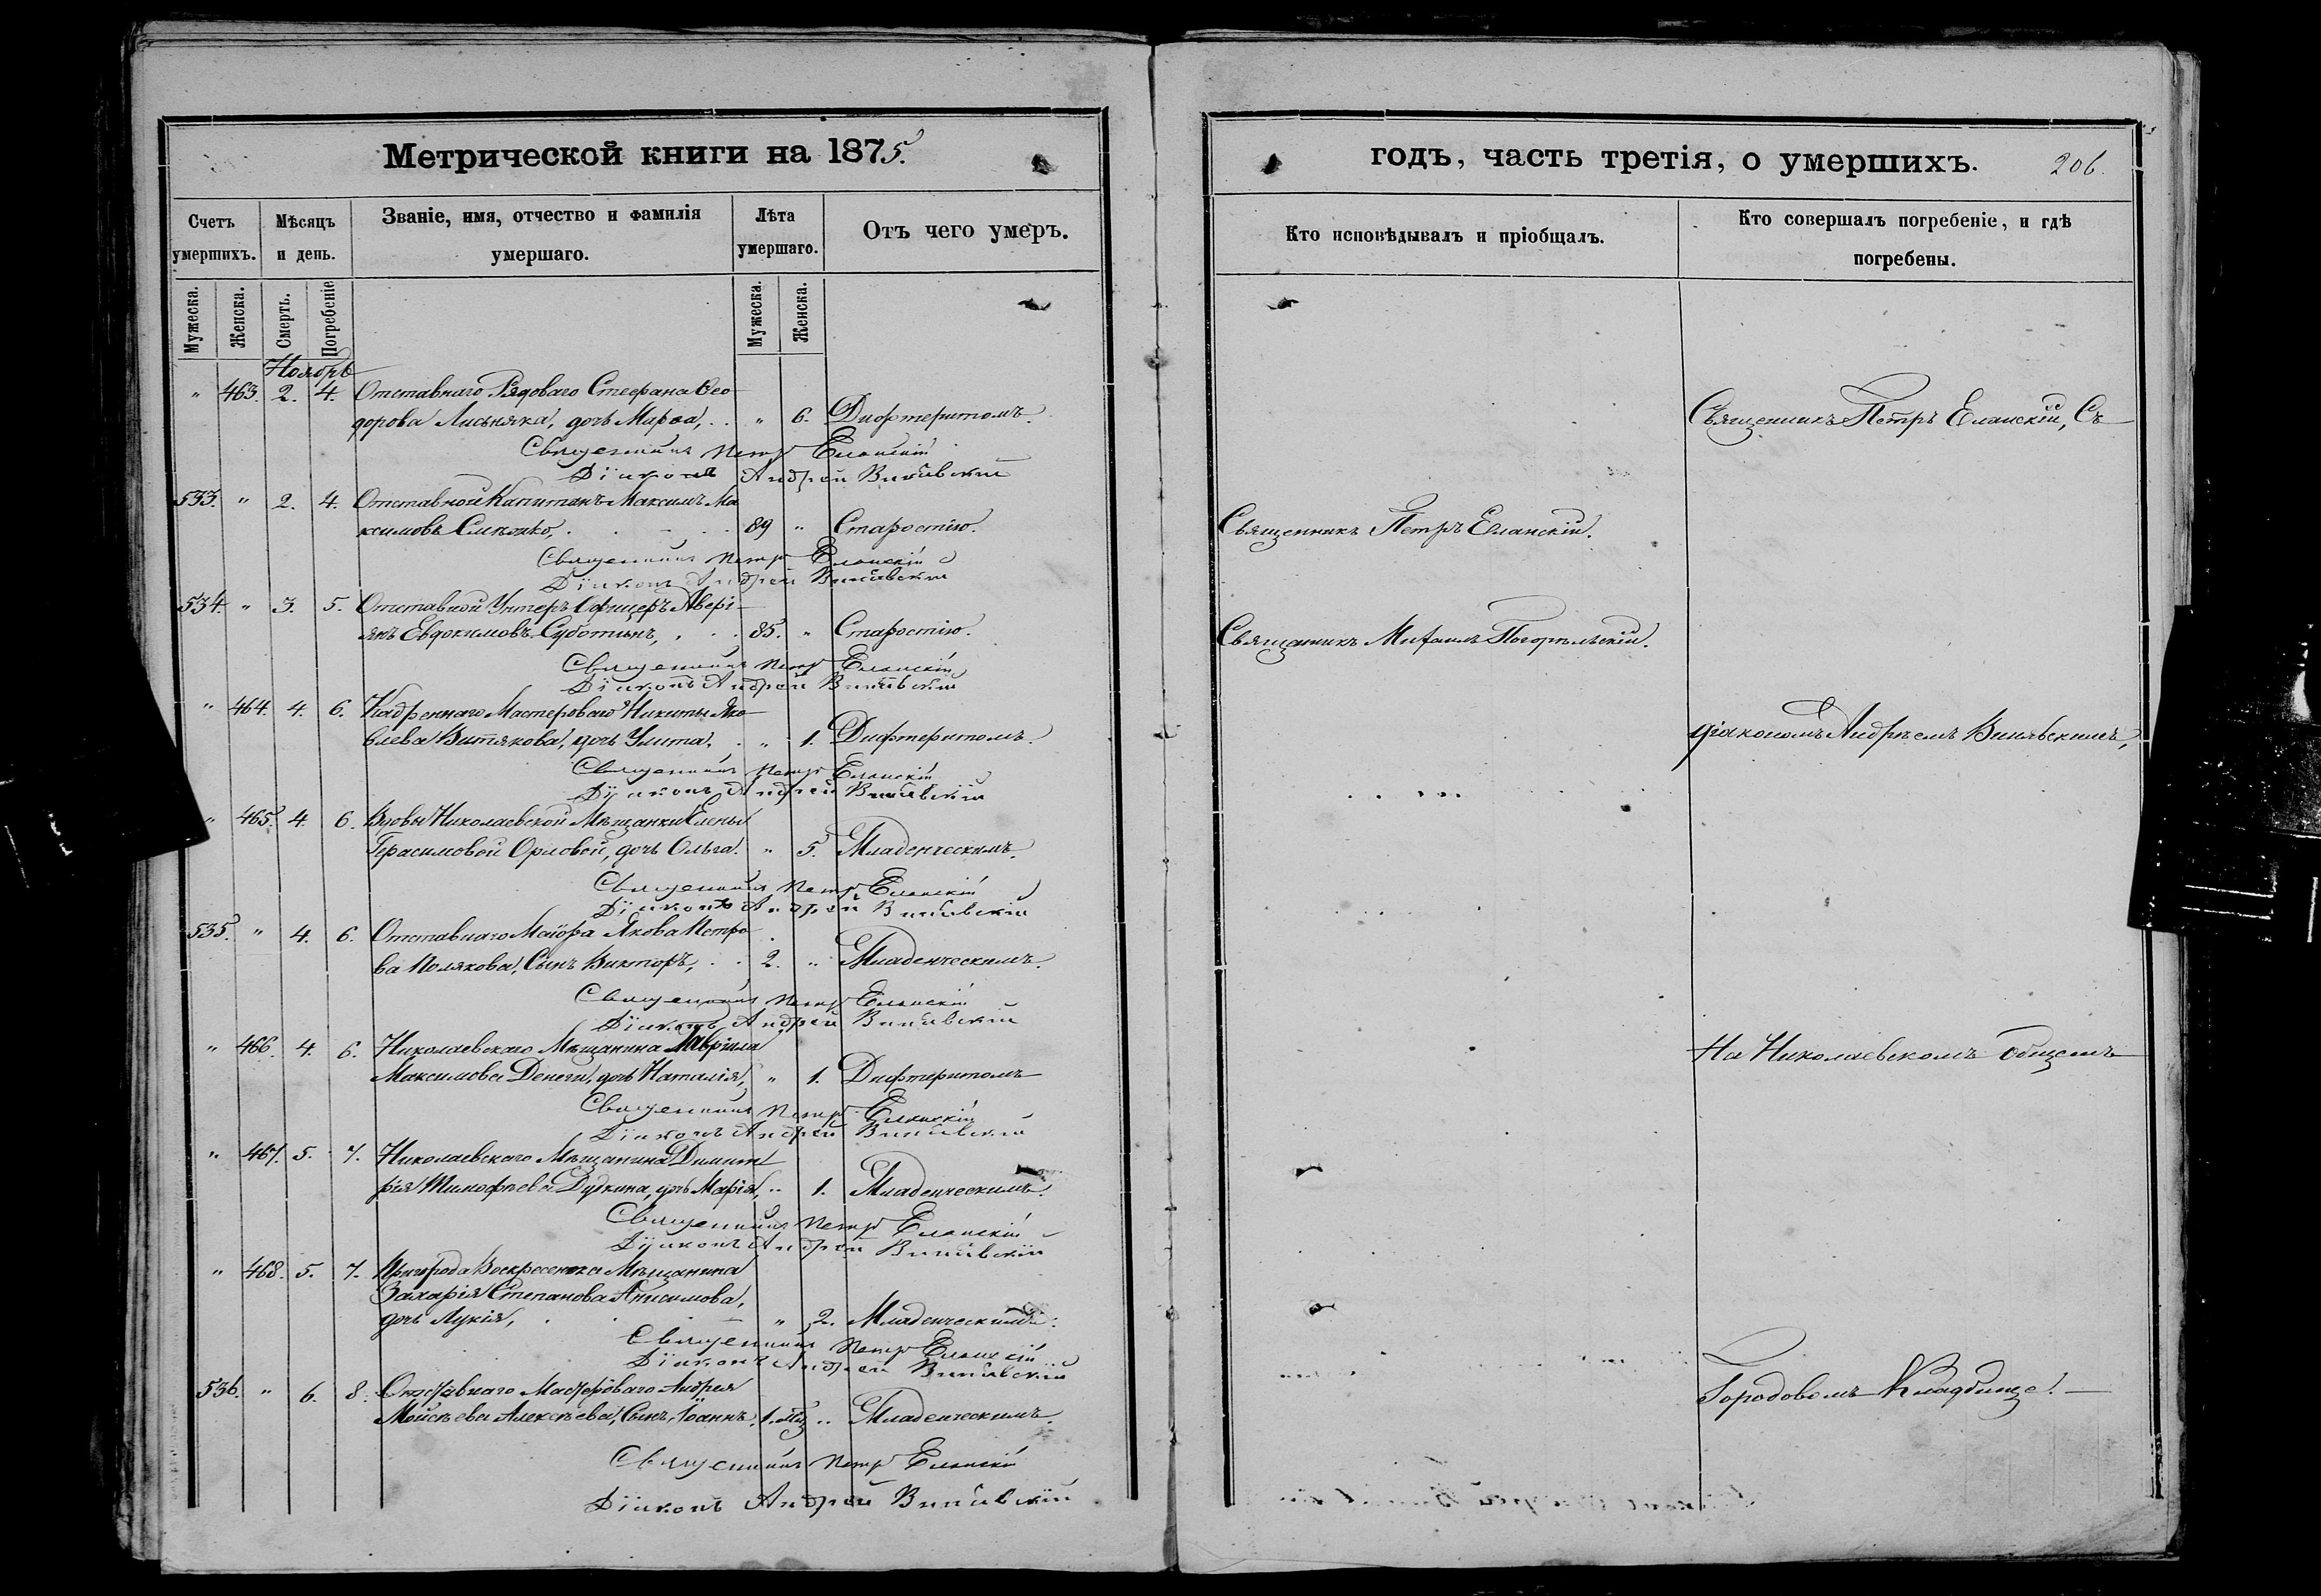 Метрической книги на 1875.
Счетъ умершихъ.
Мѣсяцъ и день.
Званіе, имя, отчество и фамилія умершаго.
Лѣта умершаго.
Отъ чего умеръ.
Мужеска.
Женска.
Смерть.
Погребеніе
Мужеска.
Женска.
Ноябрь
" 463. 2. 4. Отставнаго Рядоваго Стефана Ѳео
дорова Лисьняка, дочь Марѳа, " 6. Дифтеритомъ.
Священникъ Петръ Еланскій
Діаконъ Андрей Винявскій
533. " 2. 4. Отставной Капитанъ Максимъ Ма
ксимовъ 89 " Старостію.
Священникъ Петръ Еланскій
Діаконъ Андрей Винявскій
534. " 3. 5. Отставной Унтеръ Офицеръ Авері
янъ Евдокимовъ Суботинъ, 85. " Старостію.
Священникъ Петръ Еланскій
Діаконъ Андрей Винявскій
" 464. 4. 6. Кадреннаго Мастероваго Никиты Яко
влева Витякова, дочь Улита, " 1. Дифтеритомъ.
Священникъ Петръ Еланскій
Діаконъ Андрей Винявскій
" 465. 4. 6. Вдовы Николаевской Мѣщанки Елены
Герасимовой Орловой, дочь Ольга. " 5. Младенческимъ.
Священникъ Петръ Еланскій
Діаконъ Андрей Винявскій
535. " 4. 6. Отставнаго Маіора Якова Петро
ва Полякова, Сынъ Викторъ, 2. " Младенческимъ.
Священникъ Петръ Еланскій
Діаконъ Андрей Винявскій
" 466. 4. 6. Николаевскаго Мѣщанина Гавріила
Максимова Денеги, дочь Наталія, " 1. Дифтеритомъ
Священникъ Петръ Еланскій
Діаконъ Андрей Винявскій
" 467. 5. 7. Николаевскаго Мѣщанина Димит
рія Тимофѣева Дудкина, дочь Марія, " 1. Младенческимъ.
Священникъ Петръ Еланскій
Діаконъ Андрей Винявскій
" 468. 5. 7. Пригорода Воскресенска Мѣщанина
Захарія Степанова Анисимова,
дочь Лукія, " 2. Младенческимъ.
Священникъ Петръ Еланскій
Діаконъ Андрей Винявскій
536. " 6. 8. Отставнаго Мастероваго Андрея
Мойсѣева Алексѣева, Сынъ Іоаннъ. 1. мѣс. " Младенческимъ.
Священникъ Петръ Еланскій
Діаконъ Андрей Винявскій
годъ, часть третія, о умершихъ.
206.
Кто исповѣдывалъ и пріобщалъ.
Кто совершалъ погребеніе, и гдѣ погребены.
Священникъ Петръ Еланскій, Съ
Священникъ Петръ Еланскій.
Священникъ Михаилъ Погорѣльскій.
діакономъ Андреемъ Винявскимъ,
На Николаевскомъ общемъ
Городовомъ Кладбище.